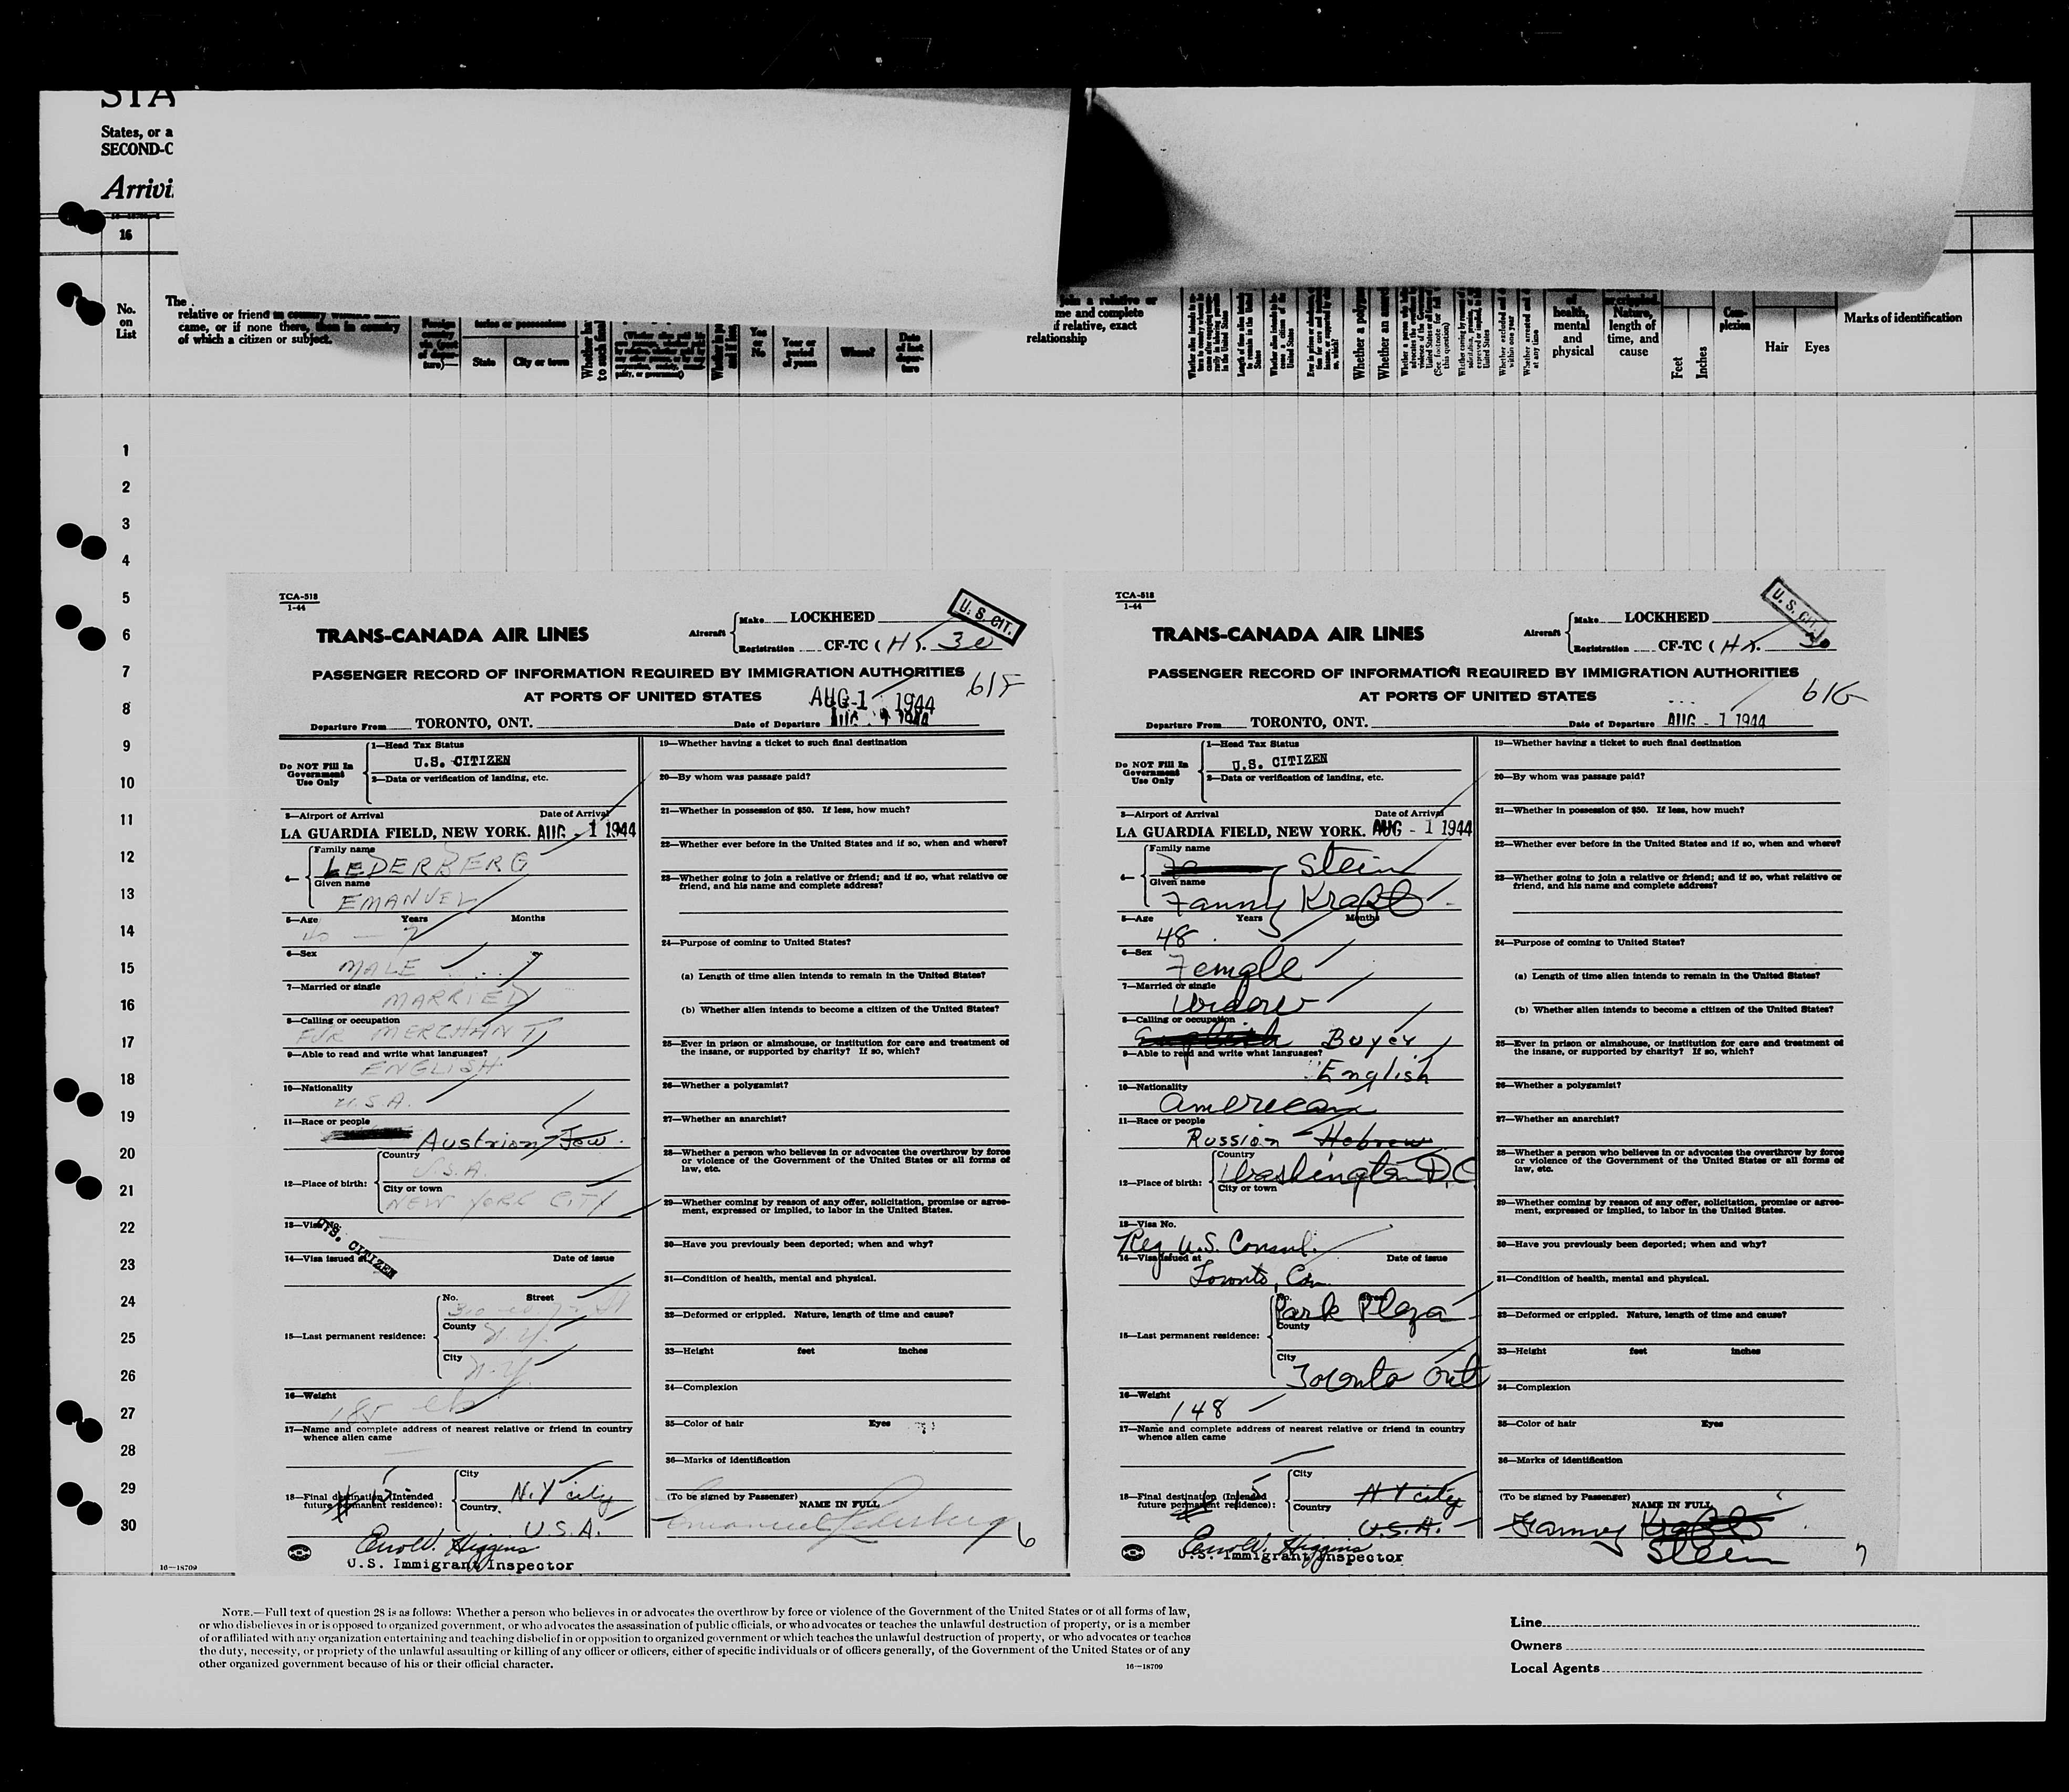 STA
States, or a
SECOND-C
Arrivi
16
No.
on
List
The
relative or friend in country
came, or if none there, then in country
of which a citizen or subject.
State
City or town
Yes
or
No
Year or
period
of years
Where?
Date
of last
depar-
ture
join a relative or
me and complete
if relative, exact
relationship
Whether a polygamist
Whether an anarch
health,
mental
and
physical
or crippled.
Nature,
length of
time, and
cause
Feet
Inches
Com-
plexion
Hair
Eyes
Marks of identification
1
2
3
4
5
6
7
8
9
10
11
12
13
14
15
16
17
18
19
20
21
22
23
24
25
26
27
28
29
30
TCA-518
1-44
TRANS-CANADA AIR LINES
Aircraft
Make LOCKHEED
Registration CF-TC (H). 30
U. S. CIT.
PASSENGER RECORD OF INFORMATION REQUIRED BY IMMIGRATION AUTHORITIES
AT PORTS OF UNITED STATES
AUG-1 1944
61F
Departure From TORONTO, ONT.
Date of Departure AUG 1944
Do NOT Fill In
Government
Use Only
1—Head Tax Status
U.S. CITIZEN
2—Data or verification of landing, etc.
3—Airport of Arrival Date of Arrival
LA GUARDIA FIELD, NEW YORK. AUG - 1 1944
4—
Family name
LEDERBERG
Given name
EMANUEL
5—Age Years Months
40 — 7
6—Sex
MALE
7—Married or single
MARRIED
8—Calling or occupation
FUR MERCHANT
9—Able to read and write what languages?
ENGLISH
10—Nationality
U.S.A.
11—Race or people
Austrian Jew.
12—Place of birth:
Country
U.S.A.
City or town
NEW YORK CITY
13—Visa No.
U.S. CITIZEN
14—Visa issued at Date of issue
15—Last permanent residence:
No. Street
County
N.Y.
City
N.Y.
16—Weight
185 lbs
17—Name and complete address of nearest relative or friend in country
whence alien came
18—Final destination (Intended
future permanent residence):
City
N.Y city
Country
U.S.A.
Errol W. Higgins
U.S. Immigrant Inspector
19—Whether having a ticket to such final destination
20—By whom was passage paid?
21—Whether in possession of $50. If less, how much?
22—Whether ever before in the United States and if so, when and where?
23—Whether going to join a relative or friend; and if so, what relative or
friend, and his name and complete address?
24—Purpose of coming to United States?
(a) Length of time alien intends to remain in the United States?
(b) Whether alien intends to become a citizen of the United States?
25—Ever in prison or almshouse, or institution for care and treatment of
the insane, or supported by charity? If so, which?
26—Whether a polygamist?
27—Whether an anarchist?
28—Whether a person who believes in or advocates the overthrow by force
or violence of the Government of the United States or all forms of
law, etc.
29—Whether coming by reason of any offer, solicitation, promise or agree-
ment, expressed or implied, to labor in the United States.
30—Have you previously been deported; when and why?
31—Condition of health, mental and physical.
32—Deformed or crippled. Nature, length of time and cause?
33—Height feet inches
34—Complexion
35—Color of hair Eyes
36—Marks of identification
(To be signed by Passenger)
NAME IN FULL
Emanuel Lederberg
6
TCA-518
1-44
TRANS-CANADA AIR LINES
Aircraft
Make LOCKHEED
Registration CF-TC (H). 30
U. S. CIT.
PASSENGER RECORD OF INFORMATION REQUIRED BY IMMIGRATION AUTHORITIES
AT PORTS OF UNITED STATES
61G
Departure From TORONTO, ONT.
Date of Departure AUG - 1 1944
Do NOT Fill In
Government
Use Only
1—Head Tax Status
U.S. CITIZEN
2—Data or verification of landing, etc.
3—Airport of Arrival Date of Arrival
LA GUARDIA FIELD, NEW YORK. AUG - 1 1944
4—
Family name
Stein
Given name
Fanny Kraft
5—Age Years Months
48 5
6—Sex
Female
7—Married or single
Widow
8—Calling or occupation
English Buyer
9—Able to read and write what languages?
English
10—Nationality
American
11—Race or people
Russian Hebrew
12—Place of birth:
Country
Washington D.C
City or town
13—Visa No.
Reg U.S. Consul.
14—Visa issued at Date of issue
Toronto, Can.
15—Last permanent residence:
No. Street
Park Plaza
County
City
Toronto Ont
16—Weight
148
17—Name and complete address of nearest relative or friend in country
whence alien came
18—Final destination (Intended
future permanent residence):
City
N Y city
Country
U.S.A.
Errol W. Higgins
U.S. Immigrant Inspector
19—Whether having a ticket to such final destination
20—By whom was passage paid?
21—Whether in possession of $50. If less, how much?
22—Whether ever before in the United States and if so, when and where?
23—Whether going to join a relative or friend; and if so, what relative or
friend, and his name and complete address?
24—Purpose of coming to United States?
(a) Length of time alien intends to remain in the United States?
(b) Whether alien intends to become a citizen of the United States?
25—Ever in prison or almshouse, or institution for care and treatment of
the insane, or supported by charity? If so, which?
26—Whether a polygamist?
27—Whether an anarchist?
28—Whether a person who believes in or advocates the overthrow by force
or violence of the Government of the United States or all forms of
law, etc.
29—Whether coming by reason of any offer, solicitation, promise or agree-
ment, expressed or implied, to labor in the United States.
30—Have you previously been deported; when and why?
31—Condition of health, mental and physical.
32—Deformed or crippled. Nature, length of time and cause?
33—Height feet inches
34—Complexion
35—Color of hair Eyes
36—Marks of identification
(To be signed by Passenger)
NAME IN FULL
Fanny Kraft
Stein
7
16—18709
NOTE.—Full text of question 28 is as follows: Whether a person who believes in or advocates the overthrow by force or violence of the Government of the United States or of all forms of law,
or who disbelieves in or is opposed to organized government, or who advocates the assassination of public officials, or who advocates or teaches the unlawful destruction of property, or is a member
of or affiliated with any organization entertaining and teaching disbelief in or opposition to organized government or which teaches the unlawful destruction of property, or who advocates or teaches
the duty, necessity, or propriety of the unlawful assaulting or killing of any officer or officers, either of specific individuals or of officers generally, of the Government of the United States or of any
other organized government because of his or their official character.
16—18709
Line
Owners
Local Agents